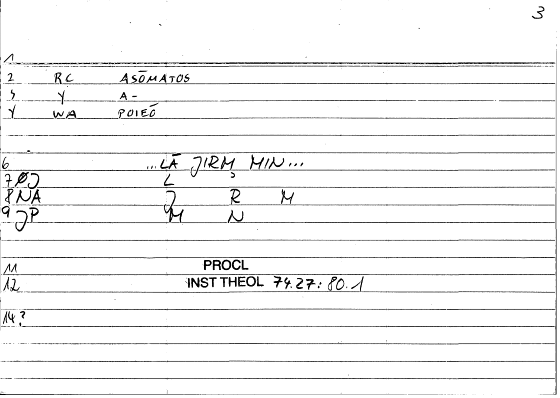 3
1
2 RC ASŌMATOS
3 Y A-
Y WA POIEŌ
6 ...LĀ JIRM MIN...
7 ØJ L
8 NA J R M
9 JP M N
11 PROCL
12 INST THEOL 74.27:80.1
14?